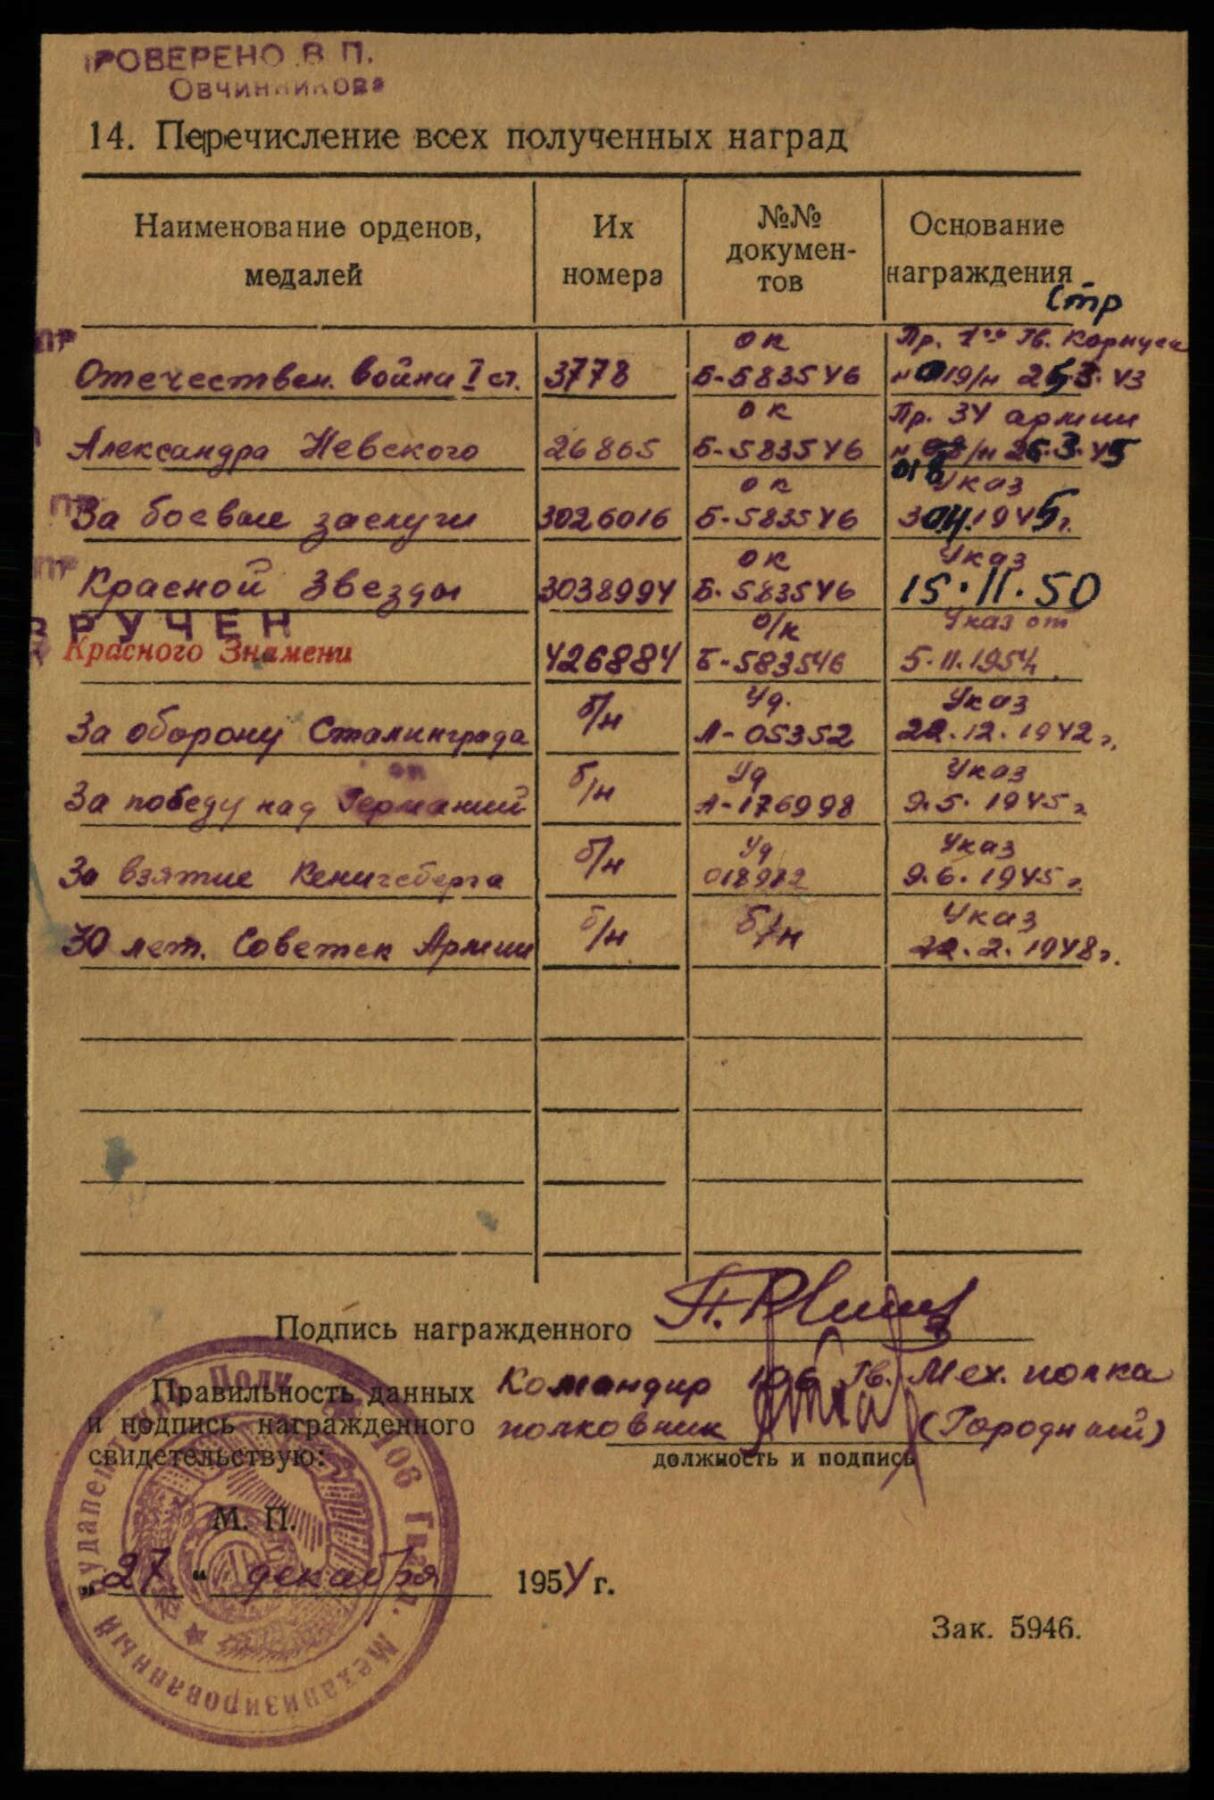 ПРОВЕРЕНО В П.
Овчинникова
14. Перечисление всех полученных наград
Наименование орденов, медалей | Их номера | №№ документов | Основание награждения
Стр
пр
Отечествен. война I ст. | 3778 | ок Б-583546 | Пр. 1го Гв. Корпуса 43
Александра Невского | 26865 | ок Б-583546 | Пр. 34 армии 45
018
пр
За боевые заслуги | 3026016 | ок Б-583546 | Указ 1945г.
пр
Красной Звезды | 3038994 | ок Б-583546 | Указ 15.11.50
ВРУЧЕН
Красного Знамени | 426884 | о/к Б-583546 | Указ от 5.11.1954
За оборону Сталинграда | б/н | Уд. А-05352 | Указ 22.12.1942г.
За победу над Германией | б/н | Уд А-176998 | Указ 9.5.1945г
За взятие Кенигсберга | б/н | Уд 018982 | Указ 9.6.1945г.
30 лет. Советск Армии | б/н | б/н | Указ 22.2.1948г.
Подпись награжденного
Правильность данных и подпись награжденного свидетельствую:
Командир 106 Гв. Мех. полка
полковник (Городний)
должность и подпись
М. П.
„27“ декабря 1954 г.
Зак. 5946.
Полк
106 Гвард. Механизированный Будапешт